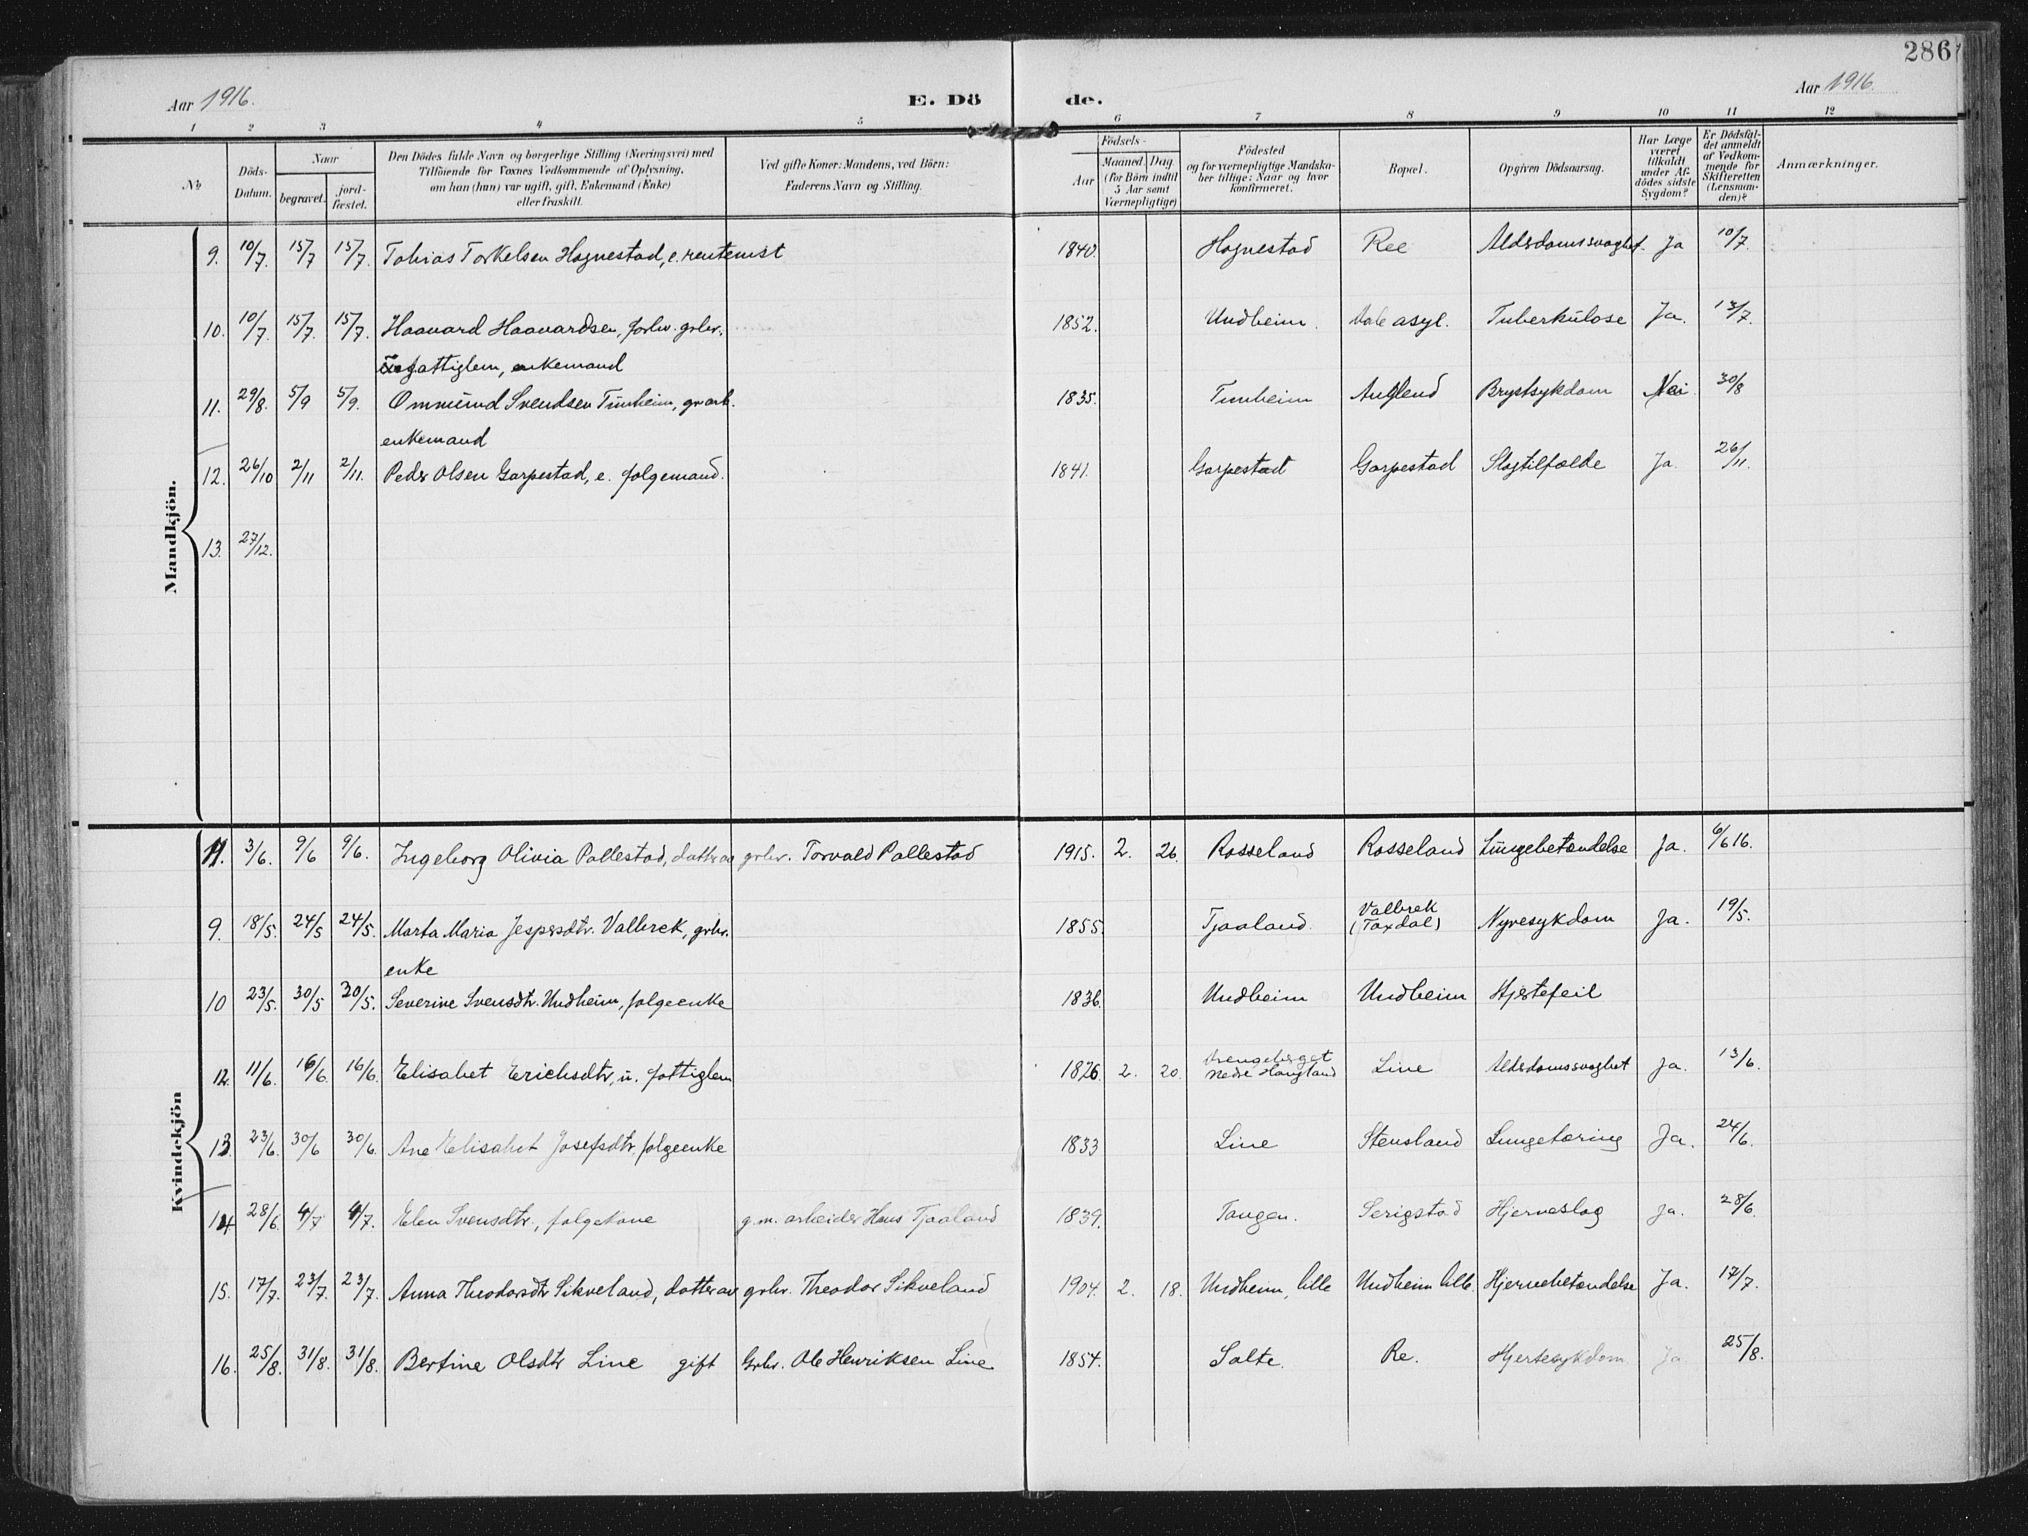 286
Aar 1916.
E. Dö de.
Aar 1916.
1 2 3 4 5 6 7 8 9 10 11 12
No
Döds-Datum.
Naar
begravet.
jord-fæstet.
Den Dödes fulde Navn og borgerlige Stilling (Næringsvei) med
Tilföiende for Voxnes Vedkommende af Oplysning,
om han (hun) var ugift, gift, Enkemand (Enke)
eller fraskilt.
Ved gifte Koner: Mandens, ved Börn:
Faderens Navn og Stilling.
Födsels-
Aar
Maaned. Dag.
(for Börn indtil
5 Aar samt
Værnepligtige)
Födested
og for værnepligtige Mandska-
ber tillige: Naar og hvor
konfirmeret.
Bopæl.
Opgiven Dödsaarsag.
Har Læge
været
tilkaldt
under Af-
dödes sidste
Sygdom?
Er Dödsfal-
det anmeldt
af Vedkom-
mende for
Skifteretten
(Lensman-
den)?
Anmærkninger.
Mandkjön.
9. 10/7 15/7 15/7. Tobias Torkelsen Hognestad, e. rentenist 1840. Hognestad Ree Alderdomssvaghet. Ja 10/7.
10. 10/7. 15/7. 15/7. Haavard Haavardsen, forhv. grbr. 1852. Undheim. asyl. Tuberkulose Ja. 13/7.
fattiglem, enkemand
11. 29/8. 5/9 5/9. Ommund Svendsen Tunheim, 1835. Tunheim Brystsykdom Nei 30/8
enkemand
12. 26/10 2/11 2/11. Peder Olsen Garpestad, e. folgemand. 1841. Garpestad Garpestad Slagtilfælde Ja. 26/11.
13. 27/12.
Kvindekjön
11. 3/6. 9/6 9/6. Ingeborg Olivia Pallestad, datter av grbr. Torvald Pallestad 1915. 2. 26. Rosseland Rosseland Lungebetændelse Ja. 6/6 16.
9. 18/5. 24/5 24/5. Marta Maria Jespersdtr. Valbrek, grbr. 1855 Tjaaland. Valbrek (Taxdal) Nyresykdom Ja. 19/5.
enke
10 23/5. 30/5 30/5. Severine Svensdtr. Undheim, folgeenke 1836. Undheim Undheim Hjertefeil
12. 11/6. 16/6. 16/6. Elisabet Erichsdtr, u. fattiglem 1826. 2. 20. Nedre Haugland Line Alderdomssvaghet Ja. 13/6.
13. 23/6. 30/6 30/6. Ane Elisabet Josefsdtr. folgeenke 1833 Line Stensland Lungetæring Ja. 24/6.
14 28/6 4/7 4/7. Elen Svensdtr., folgekone g. m. arbeider Hans Tjaaland 1839. Tangen. Serigstad Hjerneslag Ja. 28/6.
15. 17/7. 23/7. 23/7. Anna Theodorsdtr Sikveland, datter av grbr. Theodor Sikveland 1904. 2. 18. Undheim, lille Undheim lille. Hjernebetændelse Ja. 17/7.
16. 25/8. 31/8. 31/8. Bertine Olsdtr Line gift Grbr. Ole Henriksen Line 1854. Salte. Re. Hjertesykdom Ja 25/8.